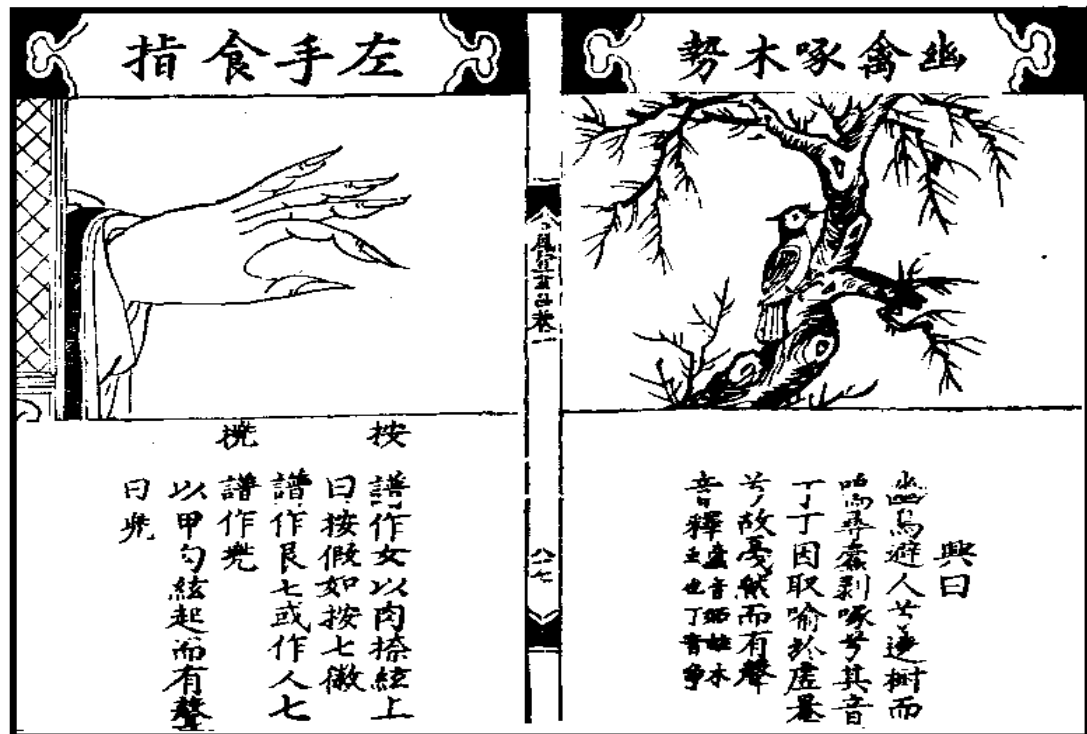 幽禽啄木勢
興曰
幽鳥避人兮遶樹而
尋蠹剥啄兮其音
丁丁因取喻於虛罨
兮故戞然而有聲
音釋 蠹音妬蛀木
虫也丁音争
風宣玄品卷一
八七
左手食指
按
譜作女以肉捺絃上
曰按假如按七徽
譜作艮七或作人七
譜作兠
以甲勾絃起而有聲
曰兠